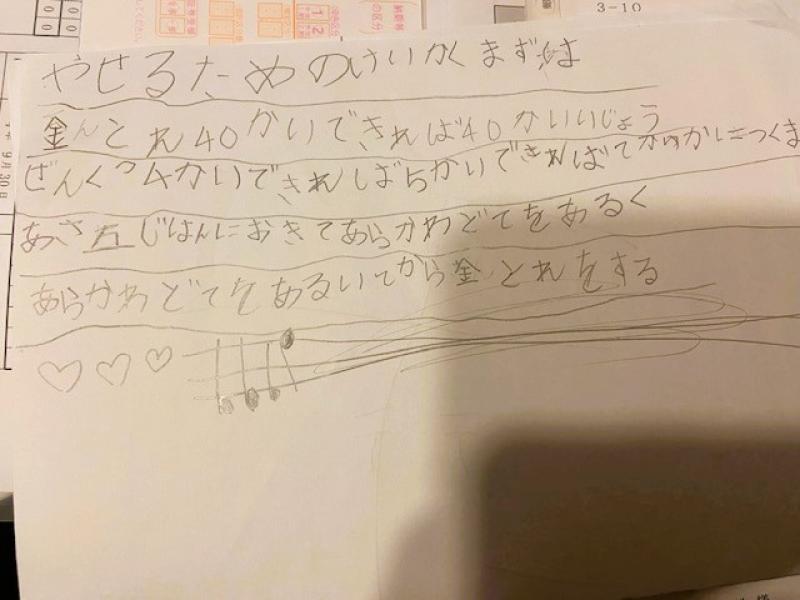 3-10
9月30日
やせるためのけいかくまずは
金んとれ40かいできれば40かいいじょう
ぜんくつ4かいできればらかいできればてがゆかにつくま
あさ五じはんにおきてあらかわどてをあるく
あらかわどてをあるいてから金とれをする